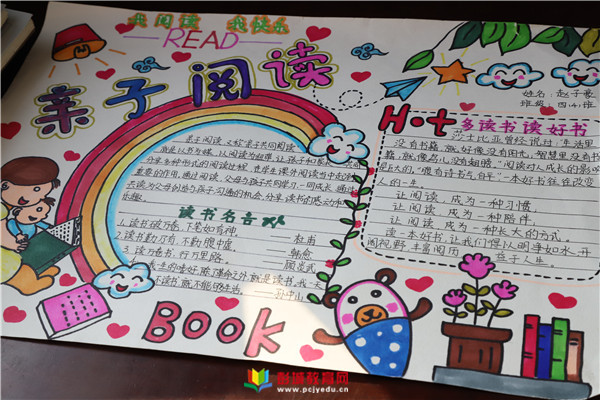 我阅读 我快乐
READ
亲子阅读
姓名:赵子墨
班级:四(4)班
亲子阅读,又称亲子共同阅读,
就是以书为媒,以阅读为纽带,让孩子和家长共同
分享多种形式的阅读过程,也是学生课外阅读当中
重要的作用,通过阅读,父母与孩子共同学习,一同成长,通
共读为父母创造与孩子沟通的机会,分享读书的感动和
乐趣。
读书名言
1.读书破万卷,下笔如有神。——杜甫
2.读书勤乃有,不勤腹中虚。——韩愈
3.读万卷书,行万里路。——顾炎武
我一生的嗜好,除了革命之外就是读书,我一天
不读书,就不能够生活。——孙中山
BOOK
Hot
多读书读好书
莎士比亚曾经说过:生活里
没有书籍,就好像没有阳光;智慧里没有书
籍,就像鸟儿没有翅膀。阅读对人成长的影响
是巨大的,一本好书往往能改变
人的一生。
让阅读,成为一种习惯。
让阅读,成为一种陪伴。
让阅读,成为一种长大的方式。
读一本好书,让我们得以明净如水,开
阔视野,丰富阅历,益于人生。
彭诚教育网
www.pcjyedu.cn